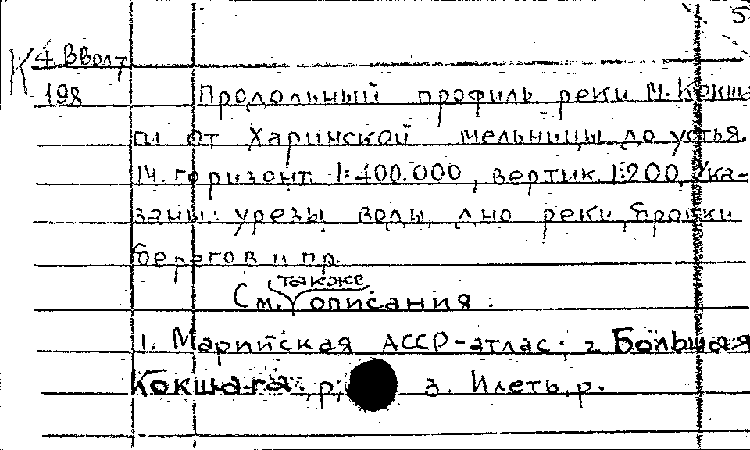 5
К 4 ВВолт
198 Продольный профиль реки М. Кокша-
ги от Харинской мельницы до устья.
М. горизонт. 1:400.000, вертик. 1:200. Ука-
заны: урезы воды, дно реки, бровки
берегов и пр.
также
См. описания:
1. Марийская АССР-атлас; 2. Большая
Кокшага, р; 3. Илеть, р.